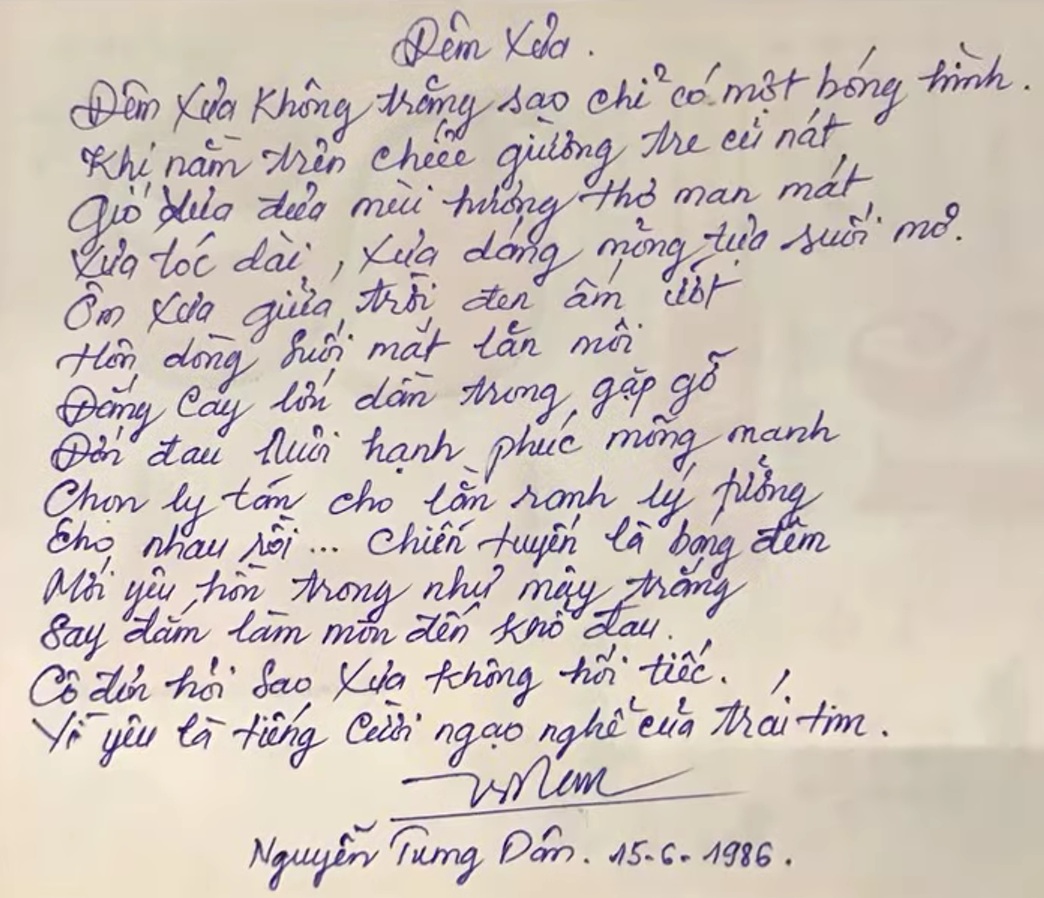 Đêm Xưa.
Đêm Xưa Không trăng sao chỉ có một bóng hình.
Khi nằm trên chiếc giường tre cũ nát
Gió đưa mùi hương thơ man mát
Xưa tóc dài, Xưa dáng mỏng tựa suối mơ.
Ôm Xưa giữa trời đen ẩm ướt
Hôn dòng suối mát lằn môi
Đắng Cay lớn dần trong gặp gỡ
Đớn đau Nuôi hạnh phúc mỏng manh
Chọn ly tán cho lằn ranh lý tưởng
Cho nhau rồi... Chiến tuyến là bóng đêm
Mới yêu hồn trong như mây trắng
Say đắm làm mòn đến khổ đau.
Cô đơn hỏi Sao Xưa không hối tiếc.
Vì yêu là tiếng Cười ngạo nghễ của trái tim.
Nguyễn Tưng Dân. 15-6-1986.